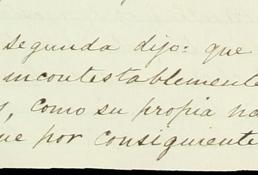 segunda dijo: que
incontestablemente
, como su propia na
ue por consiguiente